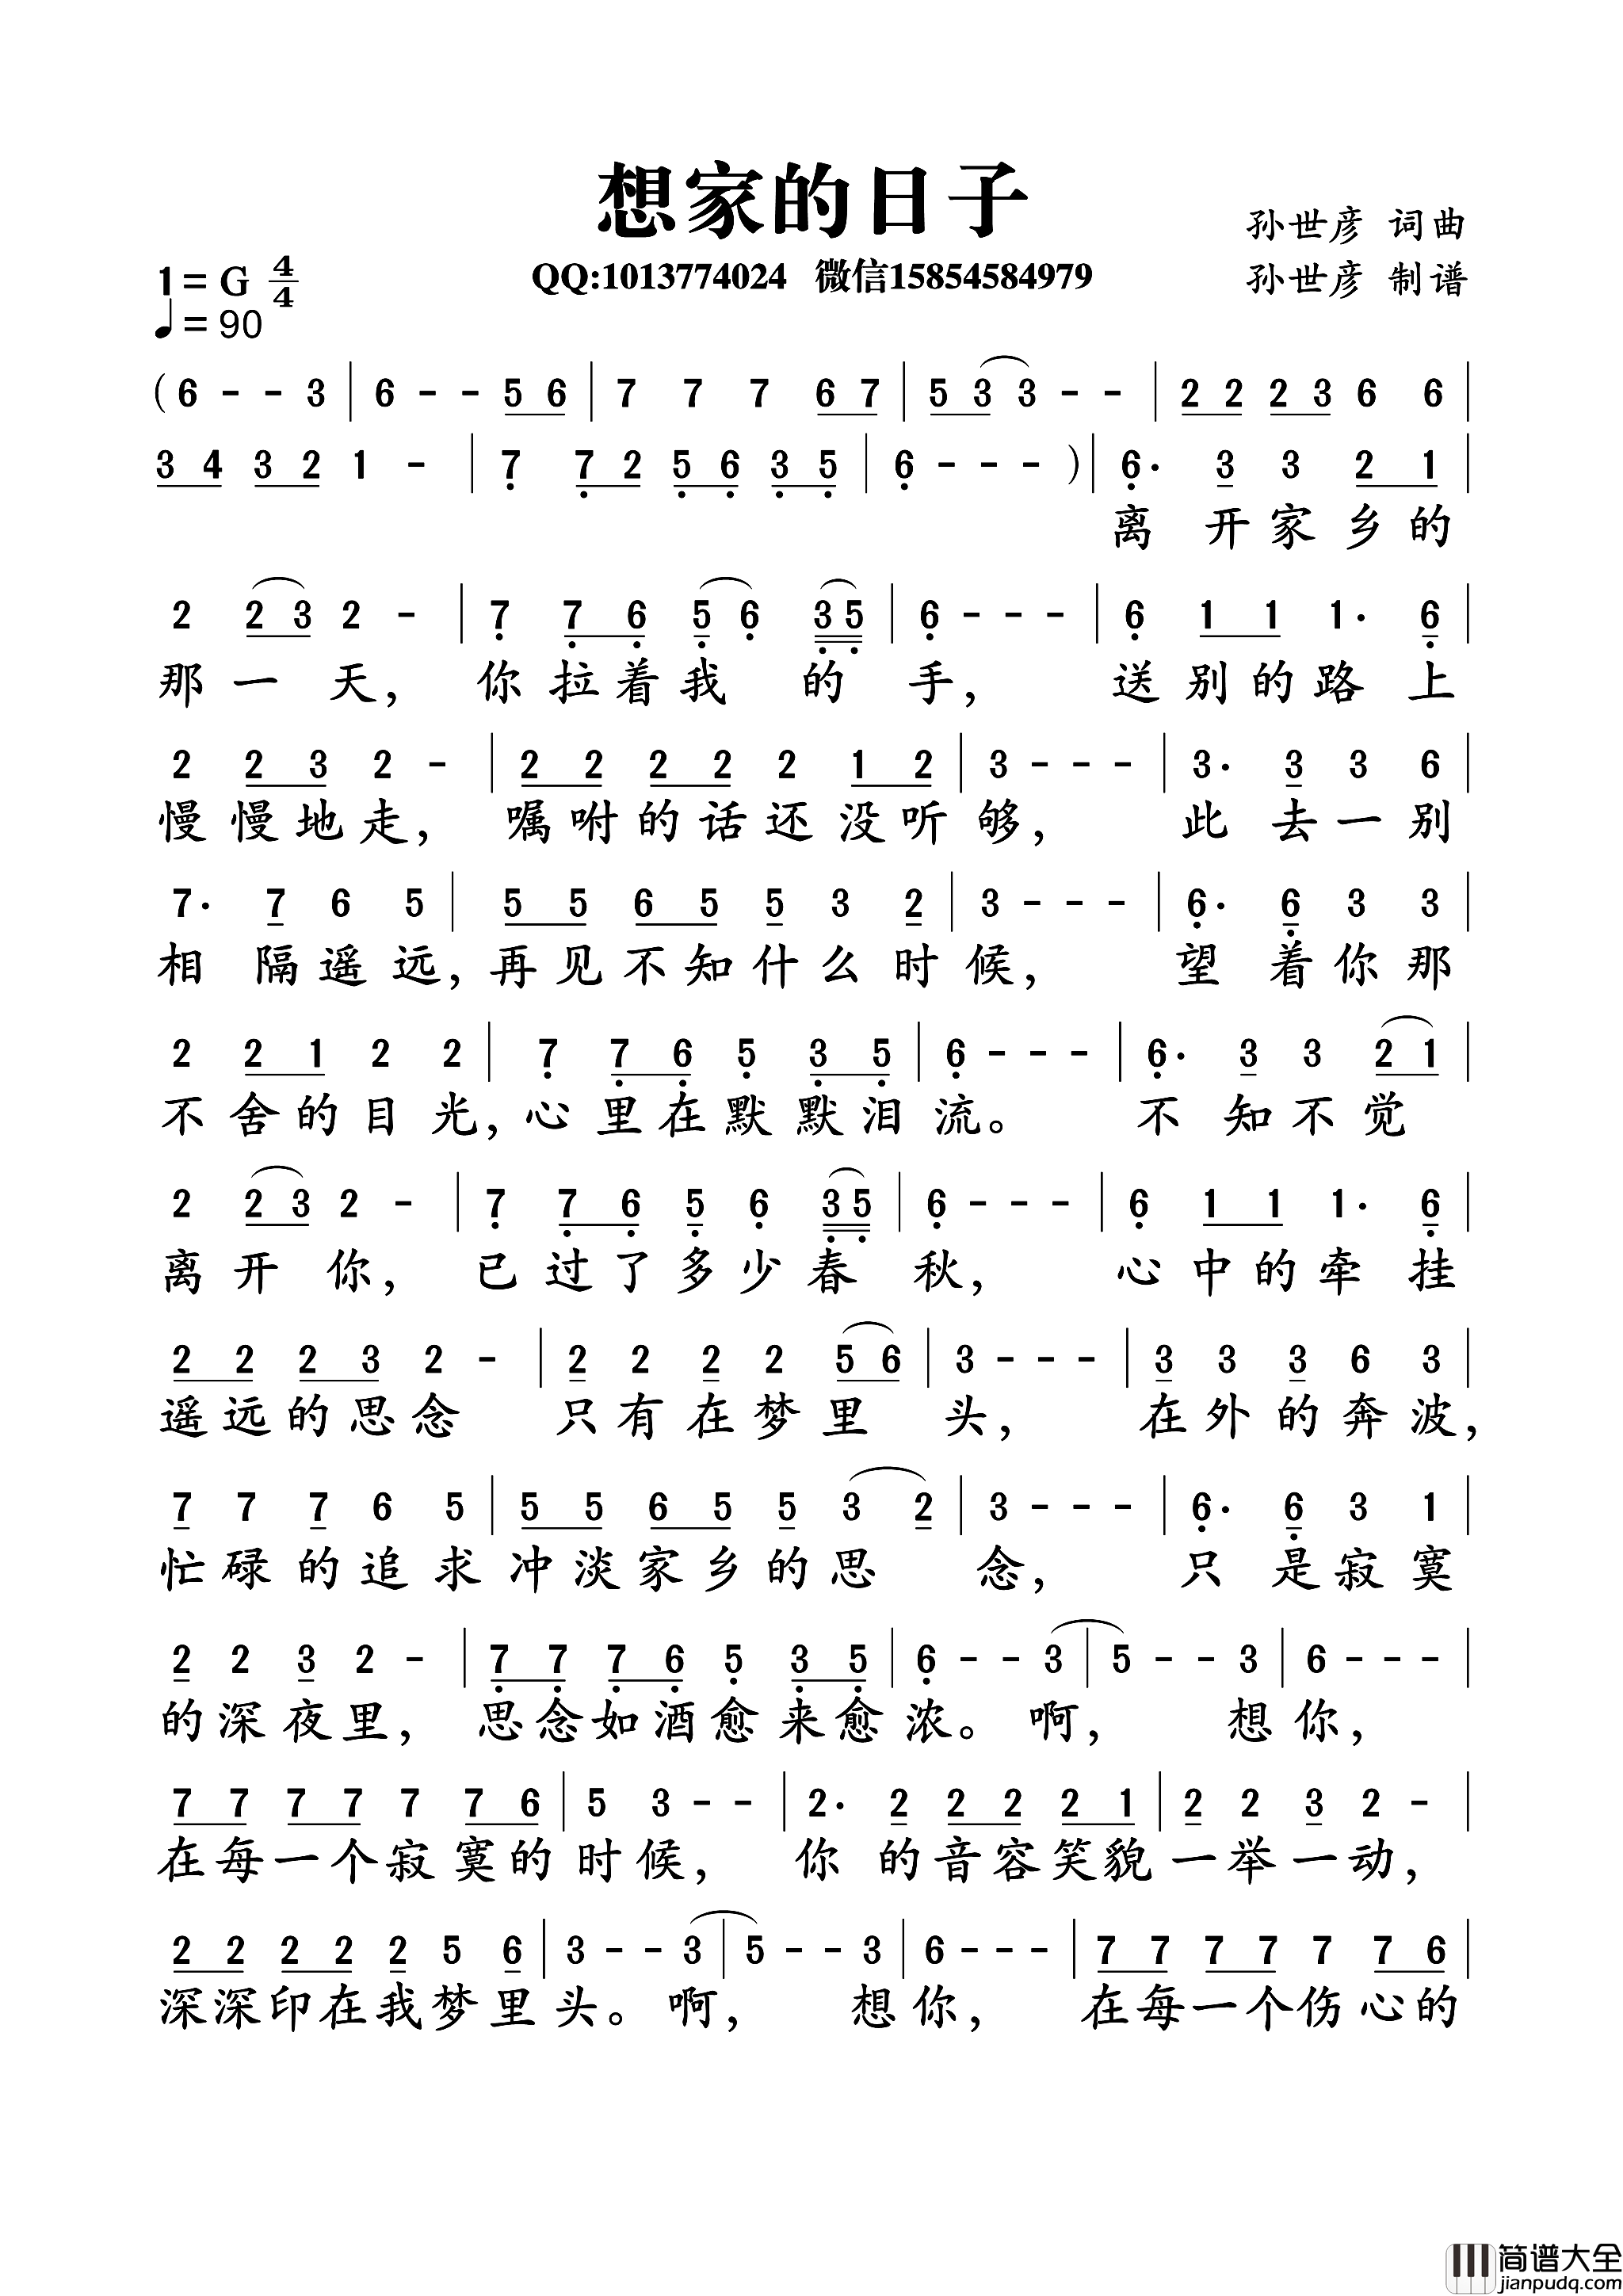 想家的日子
孙世彦 词曲
1=G 4/4
QQ:1013774024 微信15854584979
孙世彦 制谱
♩=90
(6 - - 3 | 6 - - 5 6 | 7 7 7 6 7 | 5 3 3 - - | 2 2 2 3 6 6 |
3 4 3 2 1 - | 7 7 2 5 6 3 5 | 6 - - - )| 6. 3 3 2 1 |
离开家乡的
2 2 3 2 - | 7 7 6 5 6 3 5 | 6 - - - | 6 1 1 1. 6 |
那一天，你拉着我的手，送别的路上
2 2 3 2 - | 2 2 2 2 2 1 2 | 3 - - - | 3. 3 3 6 |
慢慢地走，嘱咐的话还没听够，此去一别
7. 7 6 5 | 5 5 6 5 5 3 2 | 3 - - - | 6. 6 3 3 |
相隔遥远，再见不知什么时候，望着你那
2 2 1 2 2 | 7 7 6 5 3 5 | 6 - - - | 6. 3 3 2 1 |
不舍的目光，心里在默默泪流。不知不觉
2 2 3 2 - | 7 7 6 5 6 3 5 | 6 - - - | 6 1 1 1. 6 |
离开你，已过了多少春秋，心中的牵挂
2 2 2 3 2 - | 2 2 2 2 5 6 | 3 - - - | 3 3 3 6 3 |
遥远的思念 只有在梦里头，在外的奔波，
7 7 7 6 5 | 5 5 6 5 5 3 2 | 3 - - - | 6. 6 3 1 |
忙碌的追求冲淡家乡的思念，只是寂寞
2 2 3 2 - | 7 7 7 6 5 3 5 | 6 - - 3 | 5 - - 3 | 6 - - - |
的深夜里，思念如酒愈来愈浓。啊，想你，
7 7 7 7 7 7 6 | 5 3 - - | 2. 2 2 2 2 1 | 2 2 3 2 - |
在每一个寂寞的时候，你的音容笑貌一举一动，
2 2 2 2 2 5 6 | 3 - - 3 | 5 - - 3 | 6 - - - | 7 7 7 7 7 7 6 |
深深印在我梦里头。啊，想你，在每一个伤心的
简谱大全
jianpudq.com